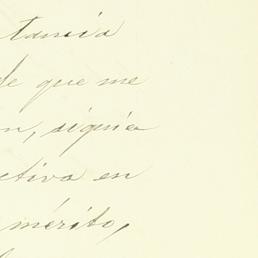 tancia
de que me
n, siguió
ctiva en
mérito,